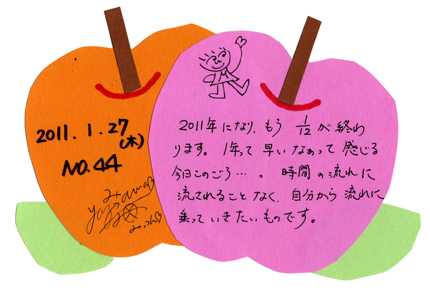 2011.1.27
(木)
NO.44
2011年になり、もう 1/12 が終わ
ります。1年って早いなあって感じる
今日このごろ…。時間の流れに
流されることなく、自分から流れに
乗っていきたいものです。